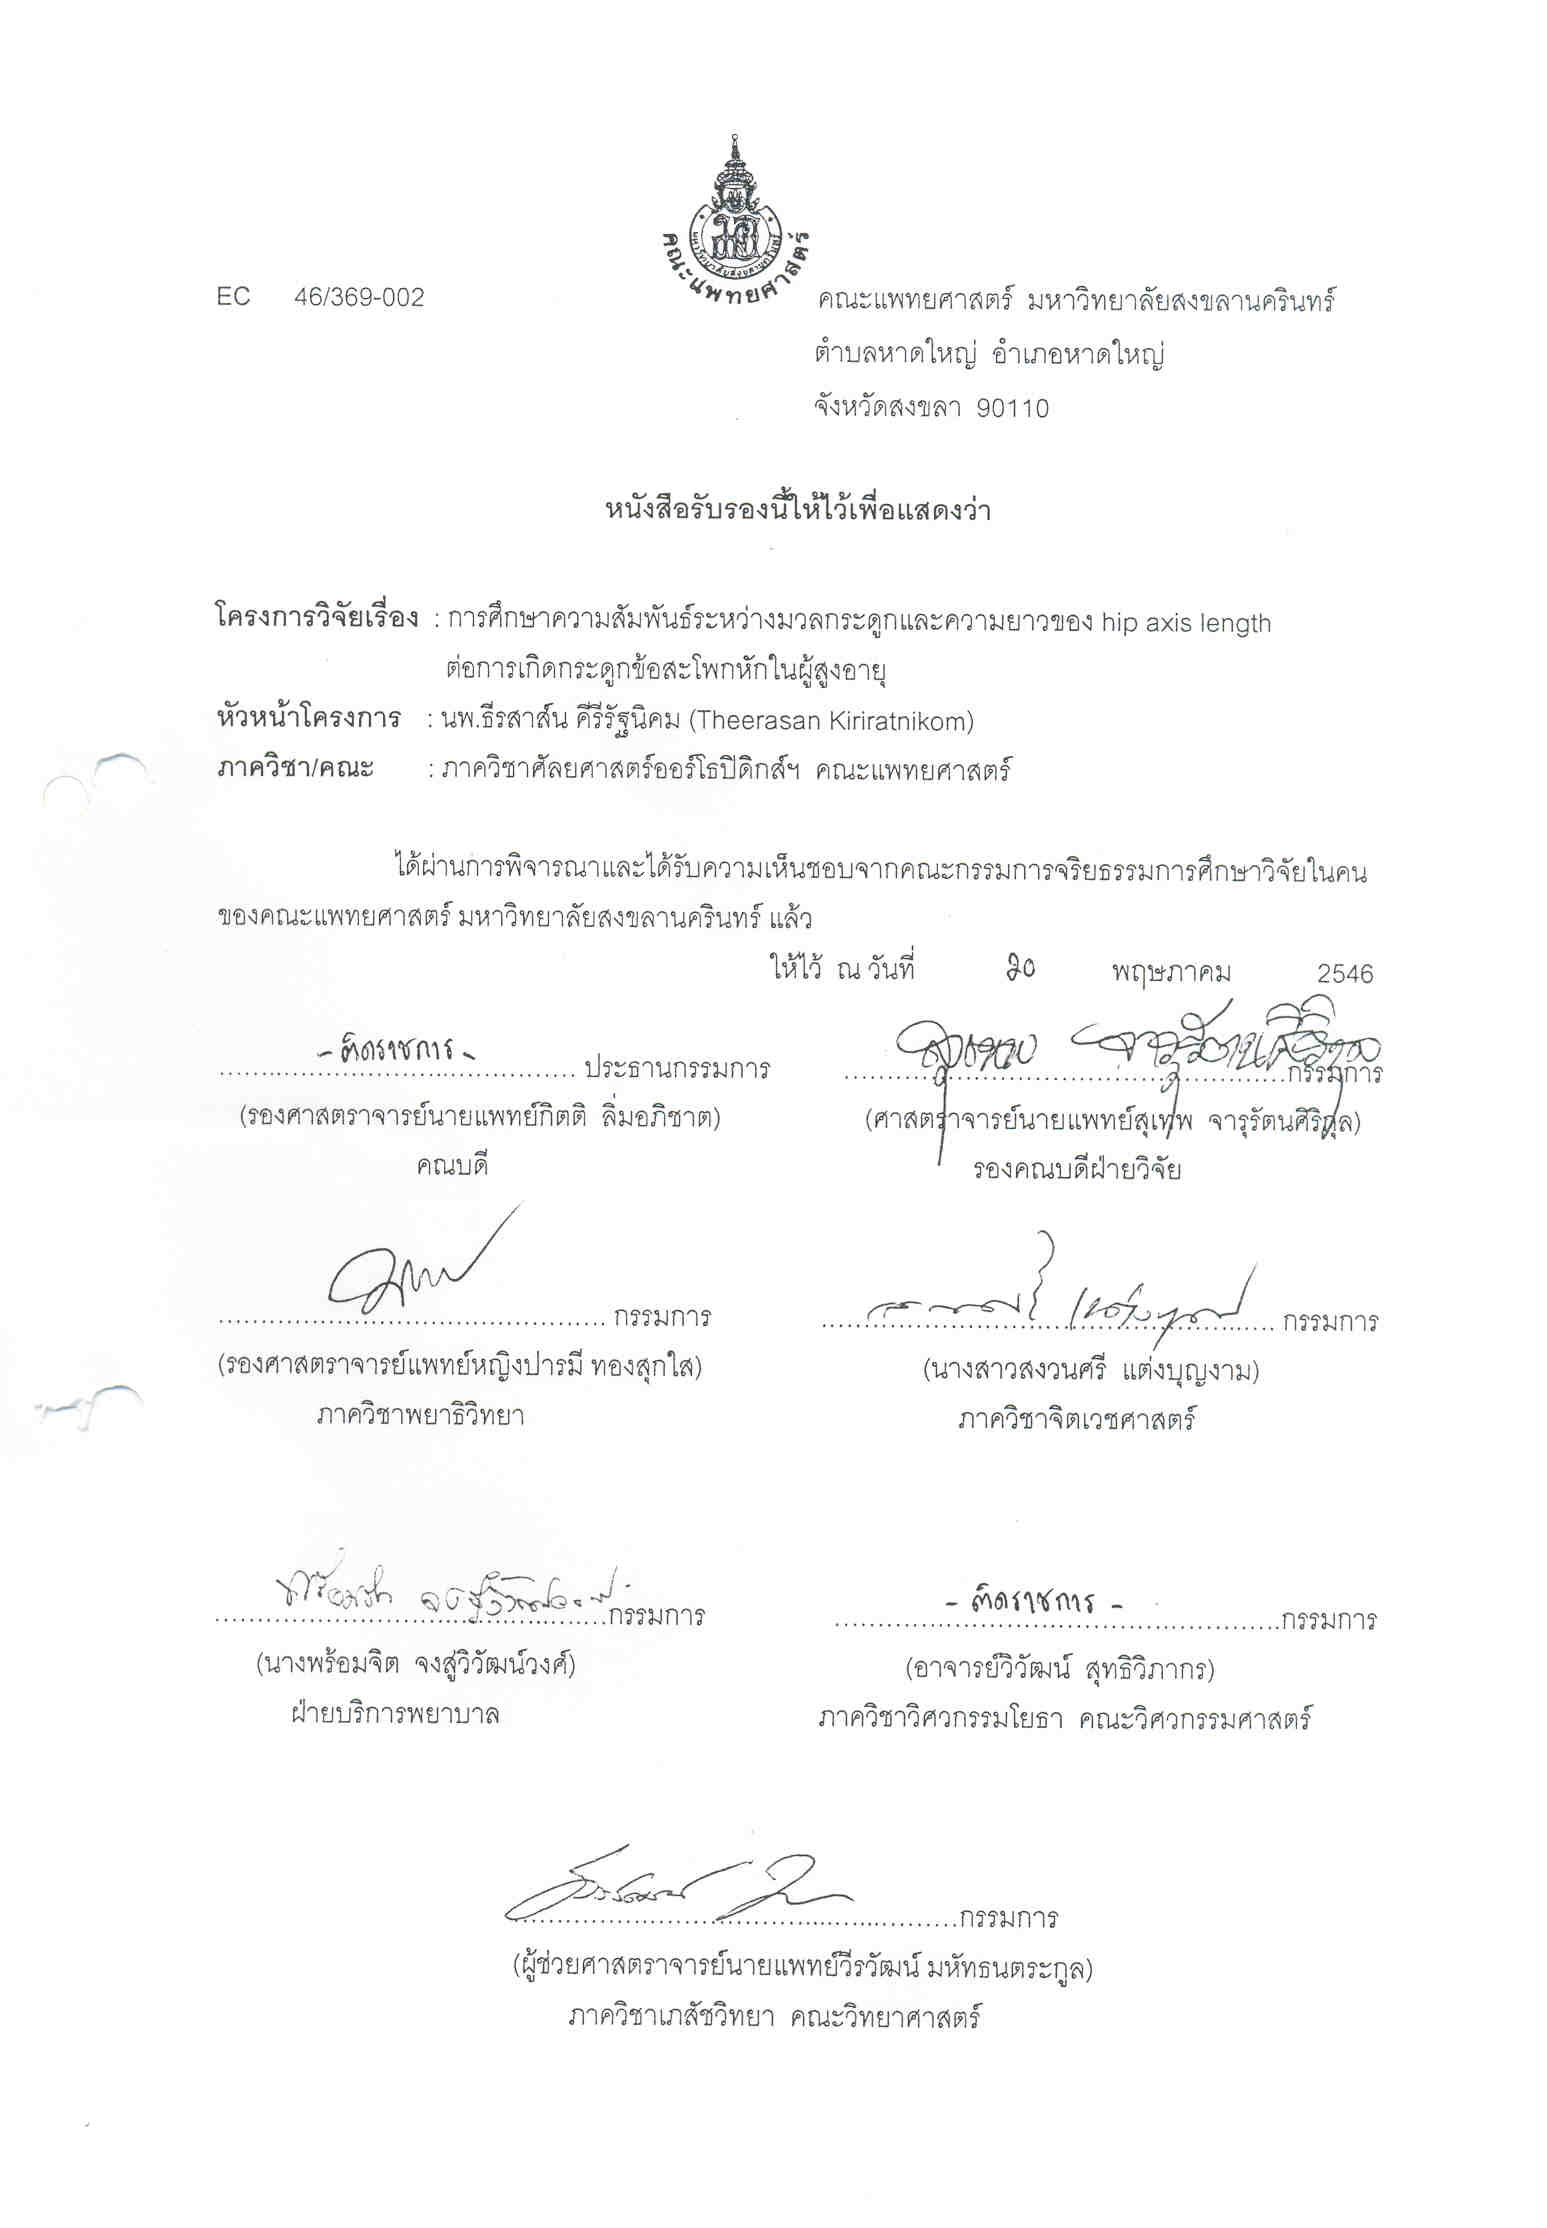 คณะแพทยศาสตร์
EC 46/369-002
คณะแพทยศาสตร์ มหาวิทยาลัยสงขลานครินทร์
ตำบลหาดใหญ่ อำเภอหาดใหญ่
จังหวัดสงขลา 90110
หนังสือรับรองนี้ให้ไว้เพื่อแสดงว่า
โครงการวิจัยเรื่อง : การศึกษาความสัมพันธ์ระหว่างมวลกระดูกและความยาวของ hip axis length
ต่อการเกิดกระดูกข้อสะโพกหักในผู้สูงอายุ
หัวหน้าโครงการ : นพ.ธีรสาส์น คีรีรัฐนิคม (Theerasan Kiriratnikom)
ภาควิชา/คณะ : ภาควิชาศัลยศาสตร์ออร์โธปิดิกส์ฯ คณะแพทยศาสตร์
ได้ผ่านการพิจารณาและได้รับความเห็นชอบจากคณะกรรมการจริยธรรมการศึกษาวิจัยในคน
ของคณะแพทยศาสตร์ มหาวิทยาลัยสงขลานครินทร์ แล้ว
ให้ไว้ ณ วันที่ 20 พฤษภาคม 2546
- ติดราชการ -
ประธานกรรมการ
กรรมการ
(รองศาสตราจารย์นายแพทย์กิตติ ลิ่มอภิชาต)
(ศาสตราจารย์นายแพทย์สุเทพ จารุรัตนศิริกุล)
คณบดี
รองคณบดีฝ่ายวิจัย
กรรมการ
กรรมการ
(รองศาสตราจารย์แพทย์หญิงปารมี ทองสุกใส)
(นางสาวสงวนศรี แต่งบุญงาม)
ภาควิชาพยาธิวิทยา
ภาควิชาจิตเวชศาสตร์
- ติดราชการ -
กรรมการ
กรรมการ
(นางพร้อมจิต จงสู่วิวัฒน์วงศ์)
(อาจารย์วิวัฒน์ สุทธิวิภากร)
ฝ่ายบริการพยาบาล
ภาควิชาวิศวกรรมโยธา คณะวิศวกรรมศาสตร์
กรรมการ
(ผู้ช่วยศาสตราจารย์นายแพทย์วีรวัฒน์ มหัทธนตระกูล)
ภาควิชาเภสัชวิทยา คณะวิทยาศาสตร์